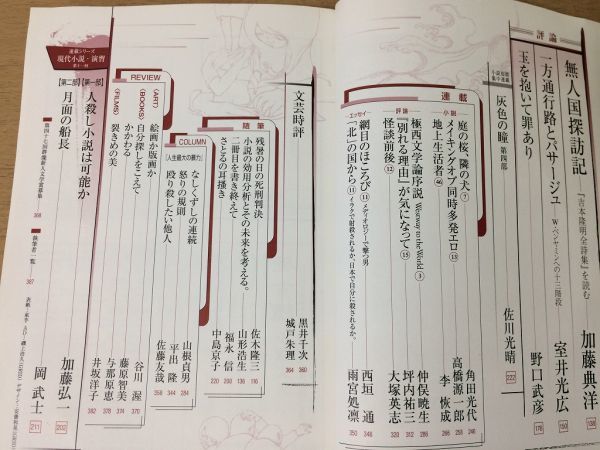 評論
無人国探訪記 『吉本隆明全詩集』を読む 加藤典洋 138
一方通行路とパサージュ W・ベンヤミンへの十三階段 室井光広 150
玉を抱いて罪あり 野口武彦 176
灰色の瞳 第四部 佐川光晴 222
連載
小説
庭の桜、隣の犬 ⑦ 角田光代 246
メイキングオブ同時多発エロ ⑬ 高橋源一郎 258
地上生活者 ㊻ 李恢成 266
評論
極西文学論序説 Westway to the World ③ 仲俣暁生 286
『別れる理由』が気になって ⑮ 坪内祐三 312
怪談前後 ⑫ 大塚英志 320
エッセイ
網目のほころび ⑪ メディオロジーで撃つ男 西垣通 346
「北」の国から ⑪ イラクで射殺されるか、日本で自分に殺されるか。 雨宮処凛 350
文芸時評
黒井千次 360
城戸朱理 364
随筆
残暑の日の死刑判決 佐木隆三 116
小説の効用分析とその未来を考える。 山形浩生 136
二冊目を書き終えて 福永信 200
さとるの耳掻き 中島京子 220
COLUMN
「人生最大の暴力」
なしくずしの連続 山根貞男 284
怒りの規則 平出隆 344
殴り殺したい他人 佐藤友哉 358
REVIEW
〈ART〉
絵画か版画か 谷川渥 370
〈BOOKS〉
自分探しをこえて 藤原智美 374
かかわる 与那原恵 378
〈FILMS〉
裂きめの美 井坂洋子 382
連載シリーズ
現代小説・演習
第十一回
【第一部】人殺し小説は可能か 加藤弘一 202
【第二部】月面の船長 岡武士 211
第四十七回群像新人文学賞募集 368
執筆者一覧 387